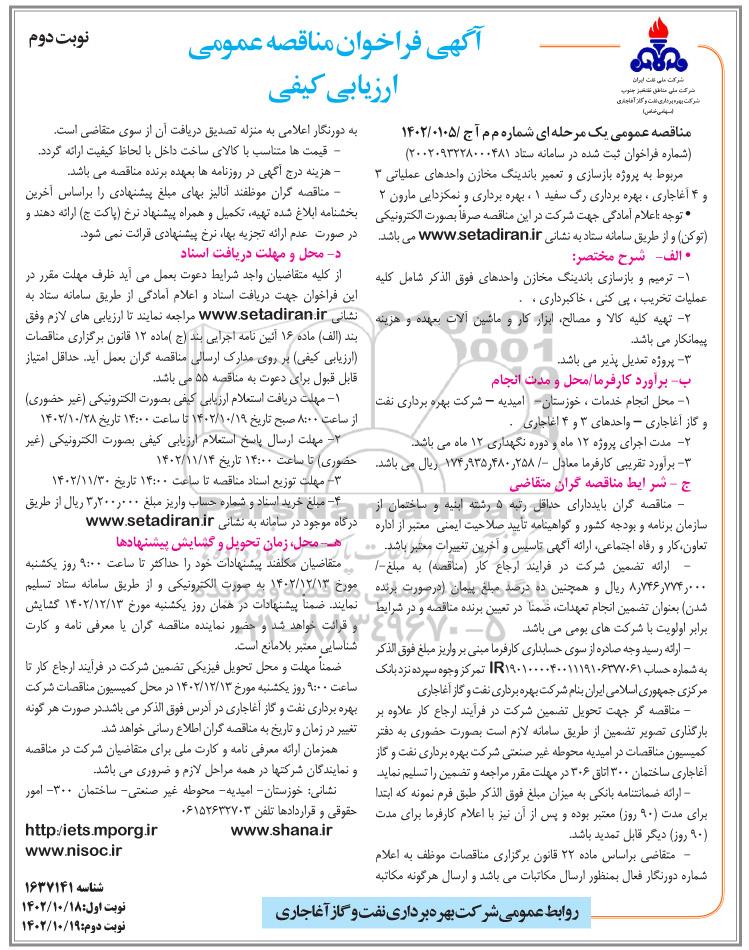 نوبت دوم
آگهی فراخوان مناقصه عمومی
ارزیابی کیفی
شرکت ملی نفت ایران
شرکت ملی مناطق نفتخیز جنوب
شرکت بهره برداری نفت و گاز آغاجاری
(سهامی خاص)
مناقصه عمومی یک مرحله ای شماره م م آ ج /۱۴۰۲/۰۱۰۵
(شماره فراخوان ثبت شده در سامانه ستاد ۲۰۰۲۰۹۳۲۲۸۰۰۰۴۸۱)
مربوط به پروژه بازسازی و تعمیر باندینگ مخازن واحدهای عملیاتی ۳
و ۴ آغاجاری ، بهره برداری رگ سفید ۱ ، بهره برداری و نمکزدایی مارون ۲
• توجه :اعلام آمادگی جهت شرکت در این مناقصه صرفاً بصورت الکترونیکی
(توکن) و از طریق سامانه ستاد به نشانی www.setadiran.ir می باشد.
• الف- شرح مختصر:
۱- ترمیم و بازسازی باندینگ مخازن واحدهای فوق الذکر شامل کلیه
عملیات تخریب ، پی کنی ، خاکبرداری ، .
۲- تهیه کلیه کالا و مصالح، ابزار کار و ماشین آلات بعهده و هزینه
پیمانکار می باشد.
۳- پروژه تعدیل پذیر می باشد.
ب- برآورد کارفرما/محل و مدت انجام
۱- محل انجام خدمات ، خوزستان- امیدیه – شرکت بهره برداری نفت
و گاز آغاجاری – واحدهای ۳ و ۴ آغاجاری .
۲- مدت اجرای پروژه ۱۲ ماه و دوره نگهداری ۱۲ ماه می باشد.
۳- برآورد تقریبی کارفرما معادل -/ ۱۷۴٫۹۳۵٫۴۸۰٫۲۵۸ ریال می باشد.
ج - شرایط مناقصه گران متقاضی
- مناقصه گران بایددارای حداقل رتبه ۵ رشته ابنیه و ساختمان از
سازمان برنامه و بودجه کشور و گواهینامه تأیید صلاحیت ایمنی معتبر از اداره
تعاون،کار و رفاه اجتماعی، ارائه آگهی تاسیس و آخرین تغییرات معتبر باشد.
- ارائه تضمین شرکت در فرایند ارجاع کار (مناقصه) به مبلغ-/
۸٫۷۴۶٫۷۷۴٫۰۰۰ ریال و همچنین ده درصد مبلغ پیمان (درصورت برنده
شدن) بعنوان تضمین انجام تعهدات، ضمنا در تعیین برنده مناقصه و در شرایط
برابر اولویت با شرکت های بومی می باشد.
- ارائه رسید وجه صادره از سوی حسابداری کارفرما مبنی بر واریز مبلغ فوق الذکر
به شماره حساب IR۱۹۰۱۰۰۰۰۴۰۰۱۱۱۹۱۰۶۳۷۷۰۶۱ تمرکز وجوه سپرده نزد بانک
مرکزی جمهوری اسلامی ایران بنام شرکت بهره برداری نفت و گاز آغاجاری
- مناقصه گر جهت تحویل تضمین شرکت در فرآیند ارجاع کار علاوه بر
بارگذاری تصویر تضمین از طریق سامانه لازم است بصورت حضوری به دفتر
کمیسیون مناقصات در امیدیه محوطه غیر صنعتی شرکت بهره برداری نفت و گاز
آغاجاری ساختمان ۳۰۰ اتاق ۳۰۶ در مهلت مقرر مراجعه و تضمین را تسلیم نماید.
- ارائه ضمانتنامه بانکی به میزان مبلغ فوق الذکر طبق فرم نمونه که ابتدا
برای مدت (۹۰ روز) معتبر بوده و پس از آن نیز با اعلام کارفرما برای مدت
(۹۰ روز) دیگر قابل تمدید باشد.
- متقاضی براساس ماده ۲۲ قانون برگزاری مناقصات موظف به اعلام
شماره دورنگار فعال بمنظور ارسال مکاتبات می باشد و ارسال هرگونه مکاتبه
به دورنگار اعلامی به منزله تصدیق دریافت آن از سوی متقاضی است.
- قیمت ها متناسب با کالای ساخت داخل با لحاظ کیفیت ارائه گردد.
- هزینه درج آگهی در روزنامه ها بعهده برنده مناقصه می باشد.
- مناقصه گران موظفند آنالیز بهای مبلغ پیشنهادی را براساس آخرین
بخشنامه ابلاغ شده تهیه، تکمیل و همراه پیشنهاد نرخ (پاکت ج) ارائه دهند و
در صورت عدم ارائه تجزیه بها، نرخ پیشنهادی قرائت نمی شود.
د- محل و مهلت دریافت اسناد
از کلیه متقاضیان واجد شرایط دعوت بعمل می آید ظرف مهلت مقرر در
این فراخوان جهت دریافت اسناد و اعلام آمادگی از طریق سامانه ستاد به
نشانی www.setadiran.ir مراجعه نمایند تا ارزیابی های لازم وفق
بند (الف) ماده ۱۶ آئین نامه اجرایی بند (ج )ماده ۱۲ قانون برگزاری مناقصات
(ارزیابی کیفی) بر روی مدارک ارسالی مناقصه گران بعمل آید. حداقل امتیاز
قابل قبول برای دعوت به مناقصه ۵۵ می باشد.
۱- مهلت دریافت استعلام ارزیابی کیفی بصورت الکترونیکی (غیر حضوری)
از ساعت ۸:۰۰ صبح تاریخ ۱۴۰۲/۱۰/۱۹ تا ساعت ۱۴:۰۰ تاریخ ۱۴۰۲/۱۰/۲۸
۲- مهلت ارسال پاسخ استعلام ارزیابی کیفی بصورت الکترونیکی (غیر
حضوری) تا ساعت ۱۴:۰۰ تاریخ ۱۴۰۲/۱۱/۱۴
۳- مهلت توزیع اسناد مناقصه تا ساعت ۱۴:۰۰ تاریخ ۱۴۰۲/۱۱/۳۰
۴- مبلغ خرید اسناد و شماره حساب واریز مبلغ ۳٫۲۰۰٫۰۰۰ ریال از طریق
درگاه موجود در سامانه به نشانی www.setadiran.ir
هـ- محل، زمان تحویل و گشایش پیشنهادها
متقاضیان مکلفند پیشنهادات خود را حداکثر تا ساعت ۹:۰۰ روز یکشنبه
مورخ ۱۴۰۲/۱۲/۱۳ به صورت الکترونیکی و از طریق سامانه ستاد تسلیم
نمایند. ضمناً پیشنهادات در همان روز یکشنبه مورخ ۱۴۰۲/۱۲/۱۳ گشایش
و قرائت خواهد شد و حضور نماینده مناقصه گران با معرفی نامه و کارت
شناسایی معتبر بلامانع است.
ضمناً مهلت و محل تحویل فیزیکی تضمین شرکت در فرآیند ارجاع کار تا
ساعت ۹:۰۰ روز یکشنبه مورخ ۱۴۰۲/۱۲/۱۳ در محل کمیسیون مناقصات شرکت
بهره برداری نفت و گاز آغاجاری در آدرس فوق الذکر می باشد.در صورت هر گونه
تغییر در زمان و تاریخ به مناقصه گران اطلاع رسانی خواهد شد.
همزمان ارائه معرفی نامه و کارت ملی برای متقاضیان شرکت در مناقصه
و نمایندگان شرکتها در همه مراحل لازم و ضروری می باشد.
نشانی: خوزستان- امیدیه- محوطه غیر صنعتی- ساختمان ۳۰۰- امور
حقوقی و قراردادها تلفن ۰۶۱۵۲۶۳۲۷۰۳
http:/iets.mporg.ir www.shana.ir
www.nisoc.ir
شناسه ۱۶۳۷۱۴۱
نوبت اول: ۱۴۰۲/۱۰/۱۸
نوبت دوم: ۱۴۰۲/۱۰/۱۹
روابط عمومی شرکت بهره برداری نفت و گاز آغاجاری
۰۲۱-۸۸۳۴۹۶۷۰-۵